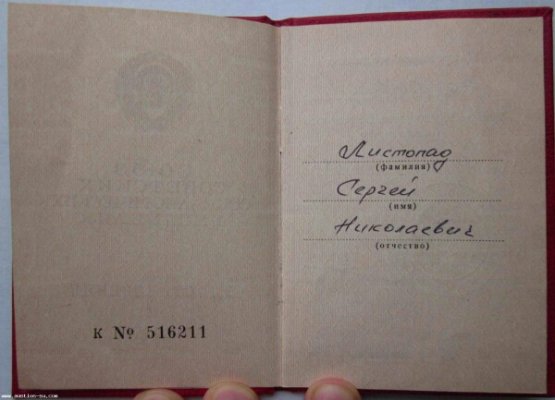 к № 516211
Листопад
(фамилия)
Сергей
(имя)
Николаевич
(отчество)
www.auction-su.com